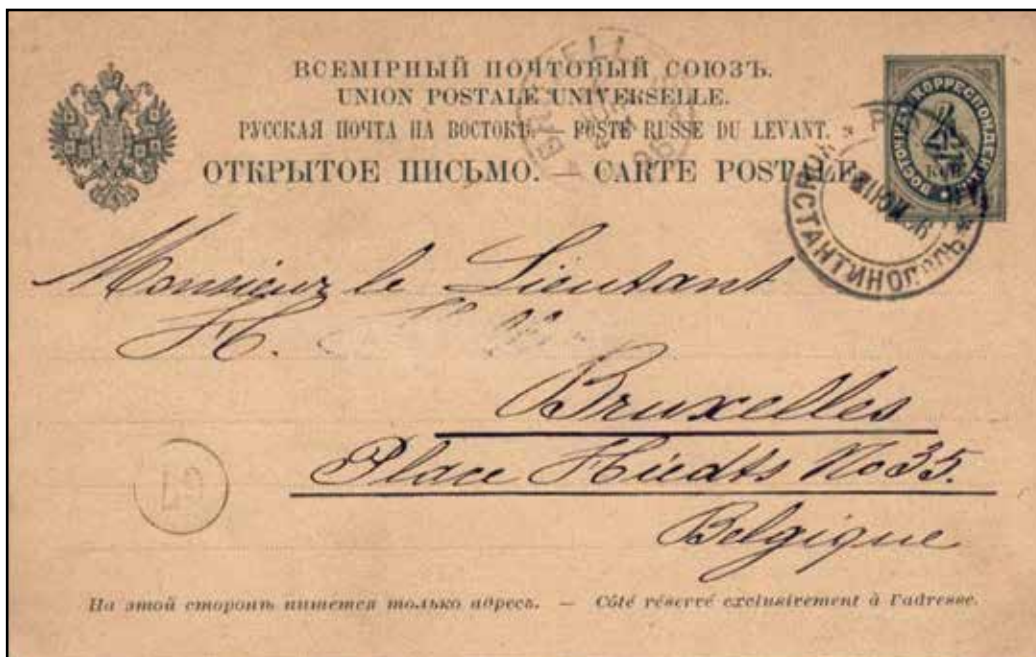 ВСЕМІРНЫЙ ПОЧТОВЫЙ СОЮЗЪ.
UNION POSTALE UNIVERSELLE.
РУССКАЯ ПОЧТА НА ВОСТОКѢ. — POSTE RUSSE DU LEVANT.
ОТКРЫТОЕ ПИСЬМО. — CARTE POSTALE
ВОСТОЧНАЯ КОРРЕСПОНДЕНЦІЯ
4
КОП.
КОНСТАНТИНОПОЛЬ
Monsieur le Lieutant
H.
Bruxelles
Place Hiedts No 35.
Belgique
На этой сторонѣ пишется только адресъ. — Côté réservé exclusivement à l'adresse.